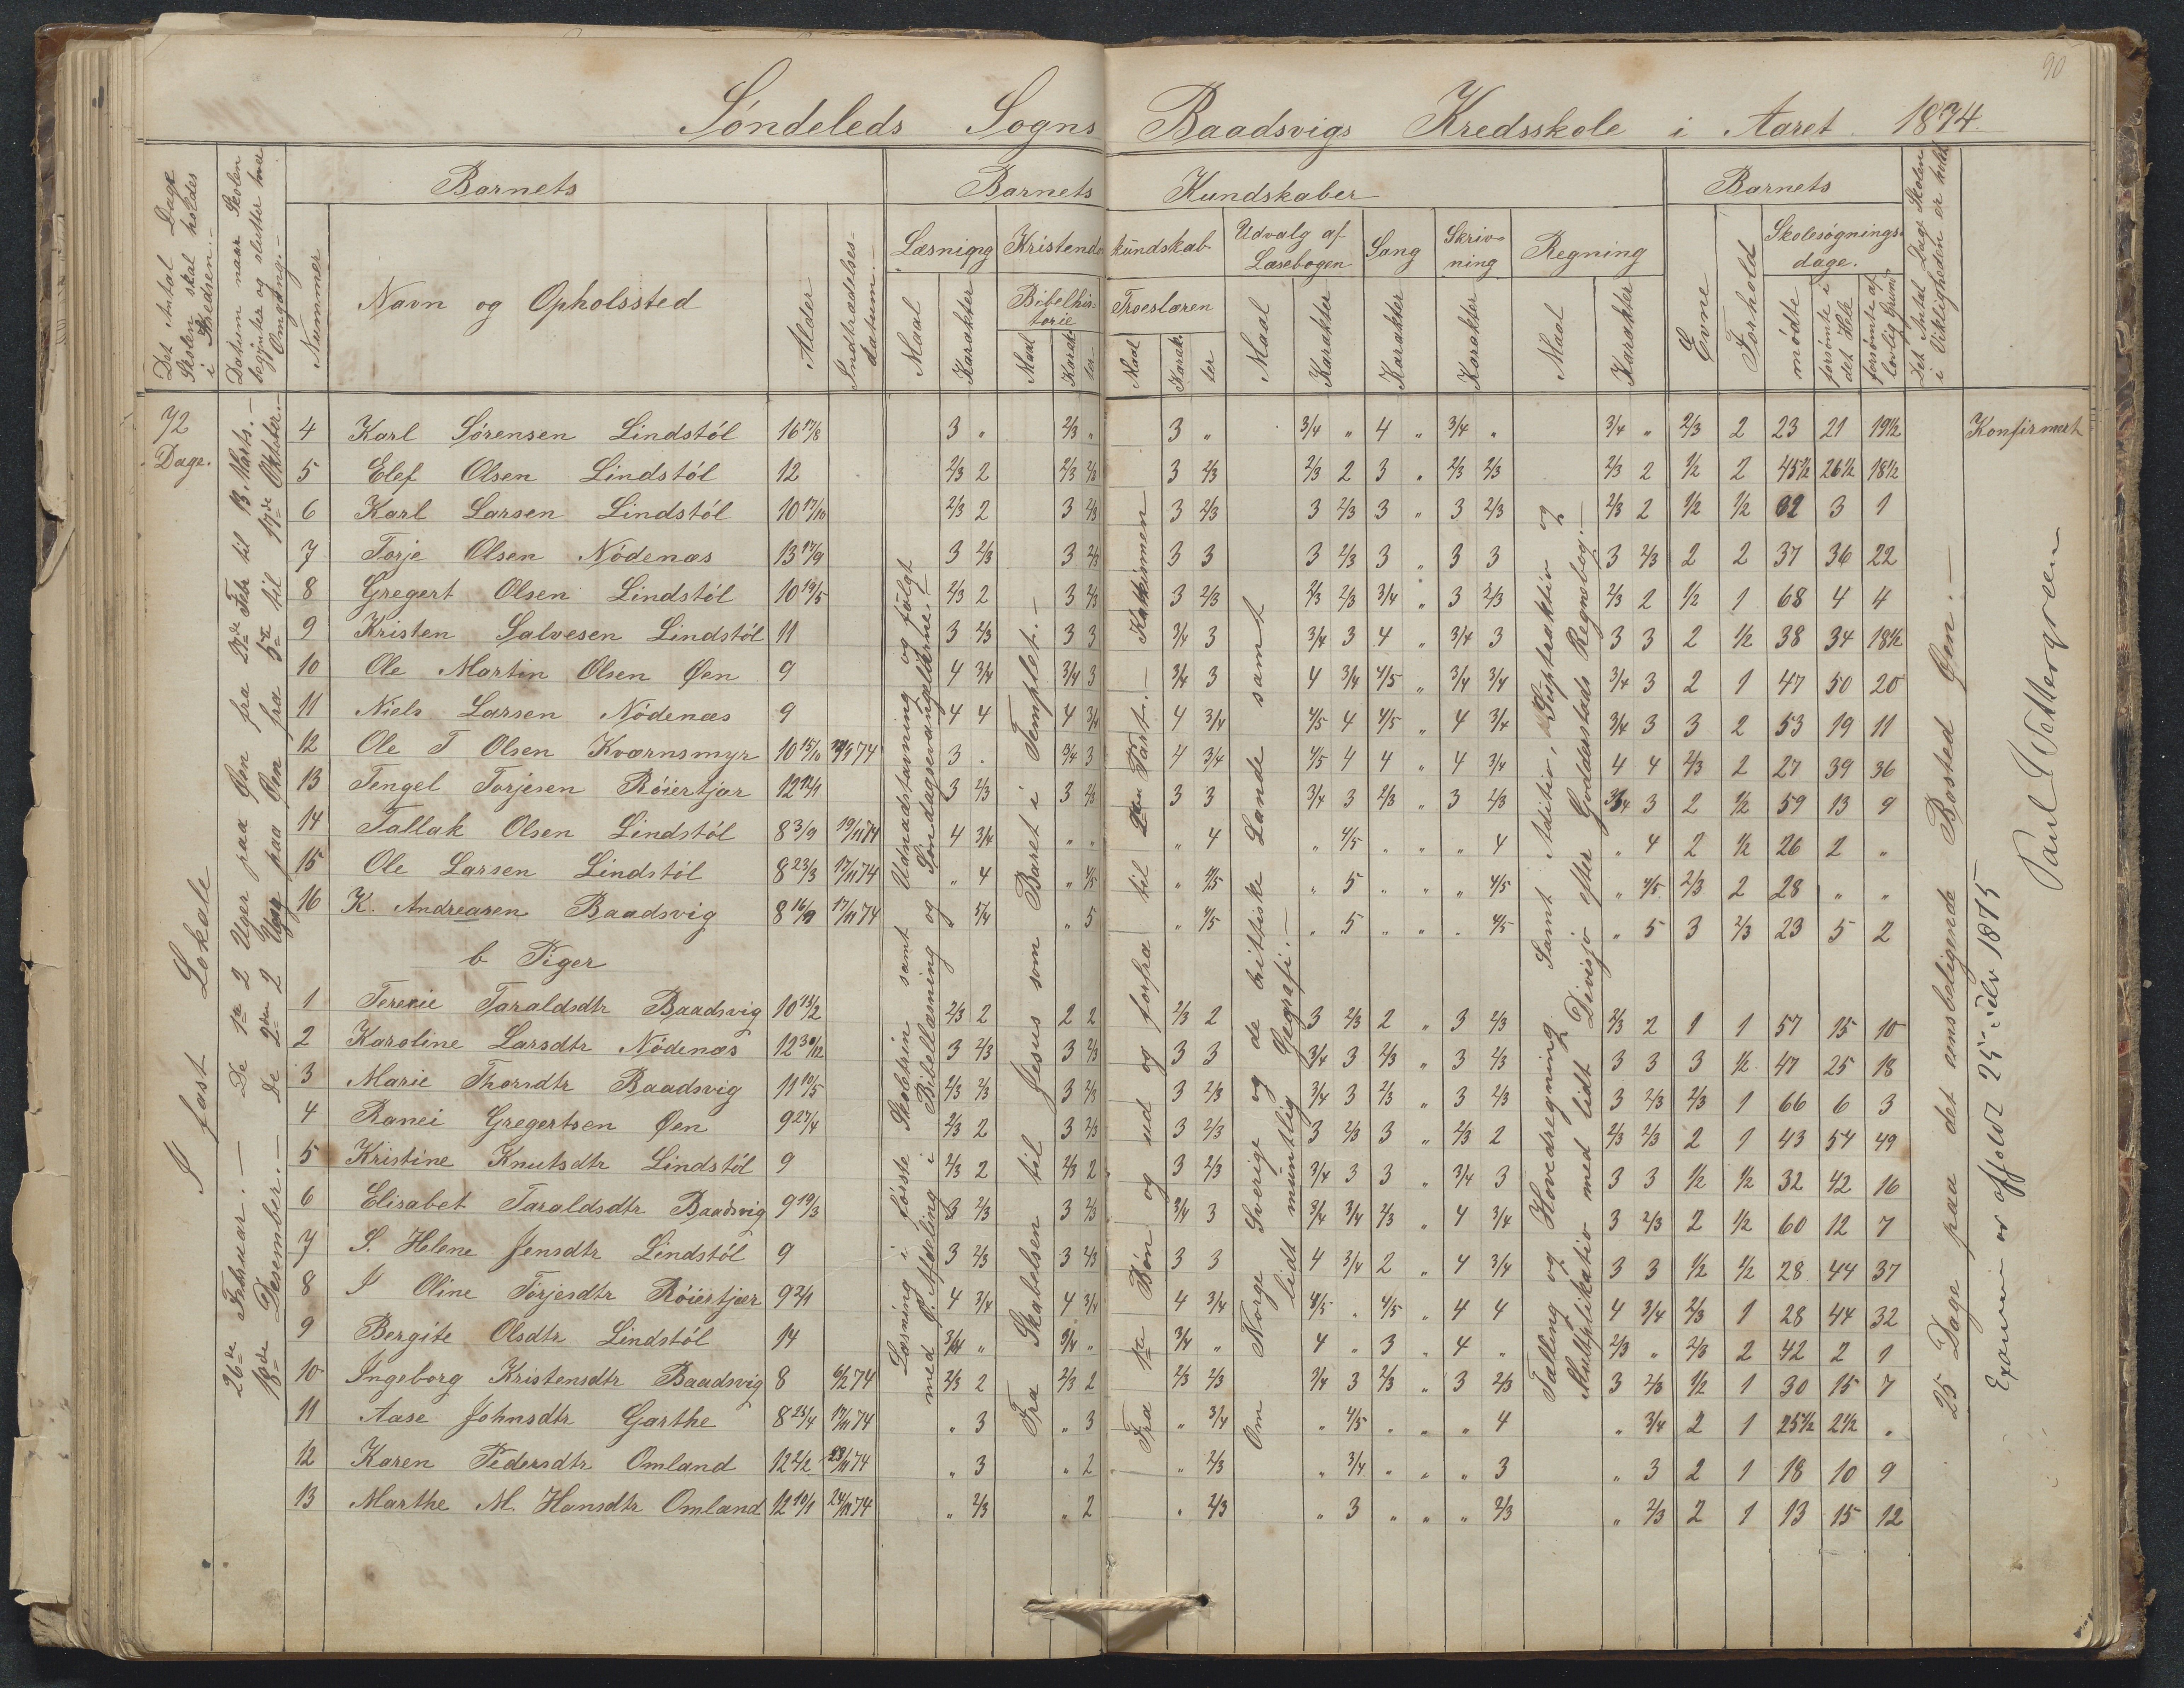 90
Søndeleds Sogns Baadsvigs Kredsskole i Aaret 1874.
Det Antal Dage Skolen skal holdes i Kredsen.-
Datum naar Skolen begynter og slutter hver Omgang.-
Barnets
Nummer
Navn og Opholssted
Alder
Indtrædelses-datum.-
Barnets Kundskaber
Læsnigng
Maal
Karakter
Kristendomskundskab
Bibelhistorie
Maal
Karakter
Troeslæren
Maal
Karakter
Udvalg af Læsebogen
Maal
Karakter
Sang
Karakter
Skrivning
Karakter
Regning
Maal
Karakter
Barnets
Evne
Forhold
Skolesøgningsdage.
mødte
forsømte i det Hele
forsømte af lovlig Grund
Det Antal Dage Skolen i Virkligheden er holdt
72 Dage.
I fast Lokale
De 1ste 2 Uger paa Øen fra 2den Febr til 13. Marts.-
De 2den 2 Uger paa Øen fra 5te til 17de Oktober.-
26de Februar.-
18de Desember.-
4 Karl Sørensen Lindstøl 16 17/8 3 " 2/3 " 3 " 3/4 " 4 " 3/4 " 3/4 " 2/3 2 23 21 19½ Konfirmert
5 Elef Olsen Lindstøl 12 2/3 2 2/3 2/3 3 2/3 2/3 2 3 " 2/3 2/3 2/3 2 1/2 2 45½ 26½ 18½
6 Karl Larsen Lindstøl 10 17/10 2/3 2 3 2/3 3 2/3 3 2/3 3 " 3 2/3 2/3 2 1/2 1/2 62 3 1
7 Torje Olsen Nødenæs 13 17/9 3 2/3 3 2/3 3 3 3 2/3 3 " 3 3 3 2/3 2 2 37 36 22
8 Gregert Olsen Lindstøl 10 19/5 2/3 2 3 2/3 3 2/3 2/3 2/3 3/4 " 3 2/3 2/3 2 1/2 1 68 4 4
9 Kristen Salvesen Lindstøl 11 3 2/3 3 3 3/4 3 3/4 3 4 " 3/4 3 3 3 2 1/2 38 34 18½
10 Ole Martin Olsen Øen 9 4 3/4 3/4 3 3/4 3 4 3/4 4/5 " 3/4 3/4 3/4 3 2 1 47 50 20
11 Niels Larsen Nødenæs 9 4 4 4 3/4 4 3/4 4/5 4 4/5 " 4 3/4 3/4 3 3 2 53 19 11
12 Ole T Olsen Kværnsmyr 10 15/10 3 . 3/4 3 4 3/4 4/5 4 4 " 4 3/4 4 4 2/3 2 27 39 36
13 Tengel Torjesen Røiertjær 12 12/1 3 2/3 3 2/3 3 3 3/4 3 2/3 " 3 2/3 3/4 3 2 1/2 59 13 9
14 Tallak Olsen Lindstøl 8 3/9 19/11 74 4 3/4 " " " 4 " 4/5 " " " 4 " 4 2 1/2 26 2 "
15 Ole Larsen Lindstøl 8 23/3 17/11 74 " 4 " 4/5 " 4/5 " 5 " " " 4/5 " 4/5 2/3 2 28 " "
16 K. Andreasen Baadsvig 8 16/9 17/11 74 " 3/4 " 5 " 4/5 " 5 " " " 4/5 " 5 3 2/3 23 5 2
b Piger
1 Teresie Taraldsdtr Baadsvig 10 13/2 2/3 2 2 2 2/3 2 3 2/3 2 " 3 2/3 2/3 2 1 1 57 15 10
2 Karoline Larsdtr Nødenæs 12 30/12 3 2/3 3 2/3 3 3 3/4 3 2/3 " 3 2/3 3 3 3 1/2 47 25 18
3 Marie Thorsdtr Baadsvig 11 10/5 2/3 2/3 3 2/3 3 2/3 3/4 3 2/3 " 3 2/3 3 2/3 2/3 1 66 6 3
4 Ranei Gregertsen Øen 9 27/4 2/3 2 3 2/3 3 2/3 3 2/3 3 " 2/3 2 2/3 2/3 2 1 43 54 49
5 Kristine Knutsdtr Lindstøl 9 2/3 2 2/3 2 3 2/3 3/4 3 3 " 3/4 3 3 3 1/2 1/2 32 42 16
6 Elisabet Taraldsdtr Baadsvig 9 19/3 3 2/3 3 2/3 3/4 3 3/4 3/4 2/3 " 4 3/4 3 2/3 2 1/2 60 12 7
7 S. Helene Jensdtr Lindstøl 9 3 2/3 3 2/3 3 3 4 3/4 2 " 4 3/4 3 3 1/2 1/2 28 44 37
8 I Oline Torjesdtr Røiertjær 9 2/1 4 3/4 4 3/4 4 3/4 4/5 . 4/5 " 4 4 4 3/4 2/3 1 28 44 32
9 Bergite Olsdtr Lindstøl 14 3/4 " 3/4 " 3/4 " 4 " 3 " 4 " 2/3 " 2/3 2 42 2 1
10 Ingeborg Kristensdtr Baadsvig 8 6/2 74 2/3 2 2/3 2 2/3 2/3 3/4 3 2/3 " 3 2/3 3 2/3 1/2 1 30 15 7
11 Aase Johnsdtr Garthe 8 23/4 17/11 74 " 3 " 3 " 3/4 " 4/5 " " " 4 " 3/4 2 1 25½ 2½ "
12 Karen Pedersdtr Omland 12 2/2 23/11 74 " 3 " 2 " 2/3 " 3/4 " " " 3 " 3 2 1 18 10 9
13 Marthe M. Hansdtr Omland 12 10/1 24/11 74 " 2/3 " 2 " 2/3 " 3 " " " 2/3 " 2/3 2 1 13 15 12
Læsning i første Skoletrin samt Udnaadstavning og følgt
med 2. Afdeling i Bibellæsning og Søndagsevangelierne.-
Fra Skabelsen til Jesus som Baret i Templet.-
Fra 1ste Bøn og ud og forfra til 2den Part.- Katekismen
Om Norge Sverige og de brittiske Lande samt
lidt mundtlig Gegrafi.-
Talling og Hovedregning. Samt Aditiv, Suptraktiv og
Multiplikativ med lidt Divisjo efter Goddarstads Regnebog.-
25 Dage paa det omsbeligende Bosted Øen.-
Examen er afholdt 25 1875
Paul Wettergreen